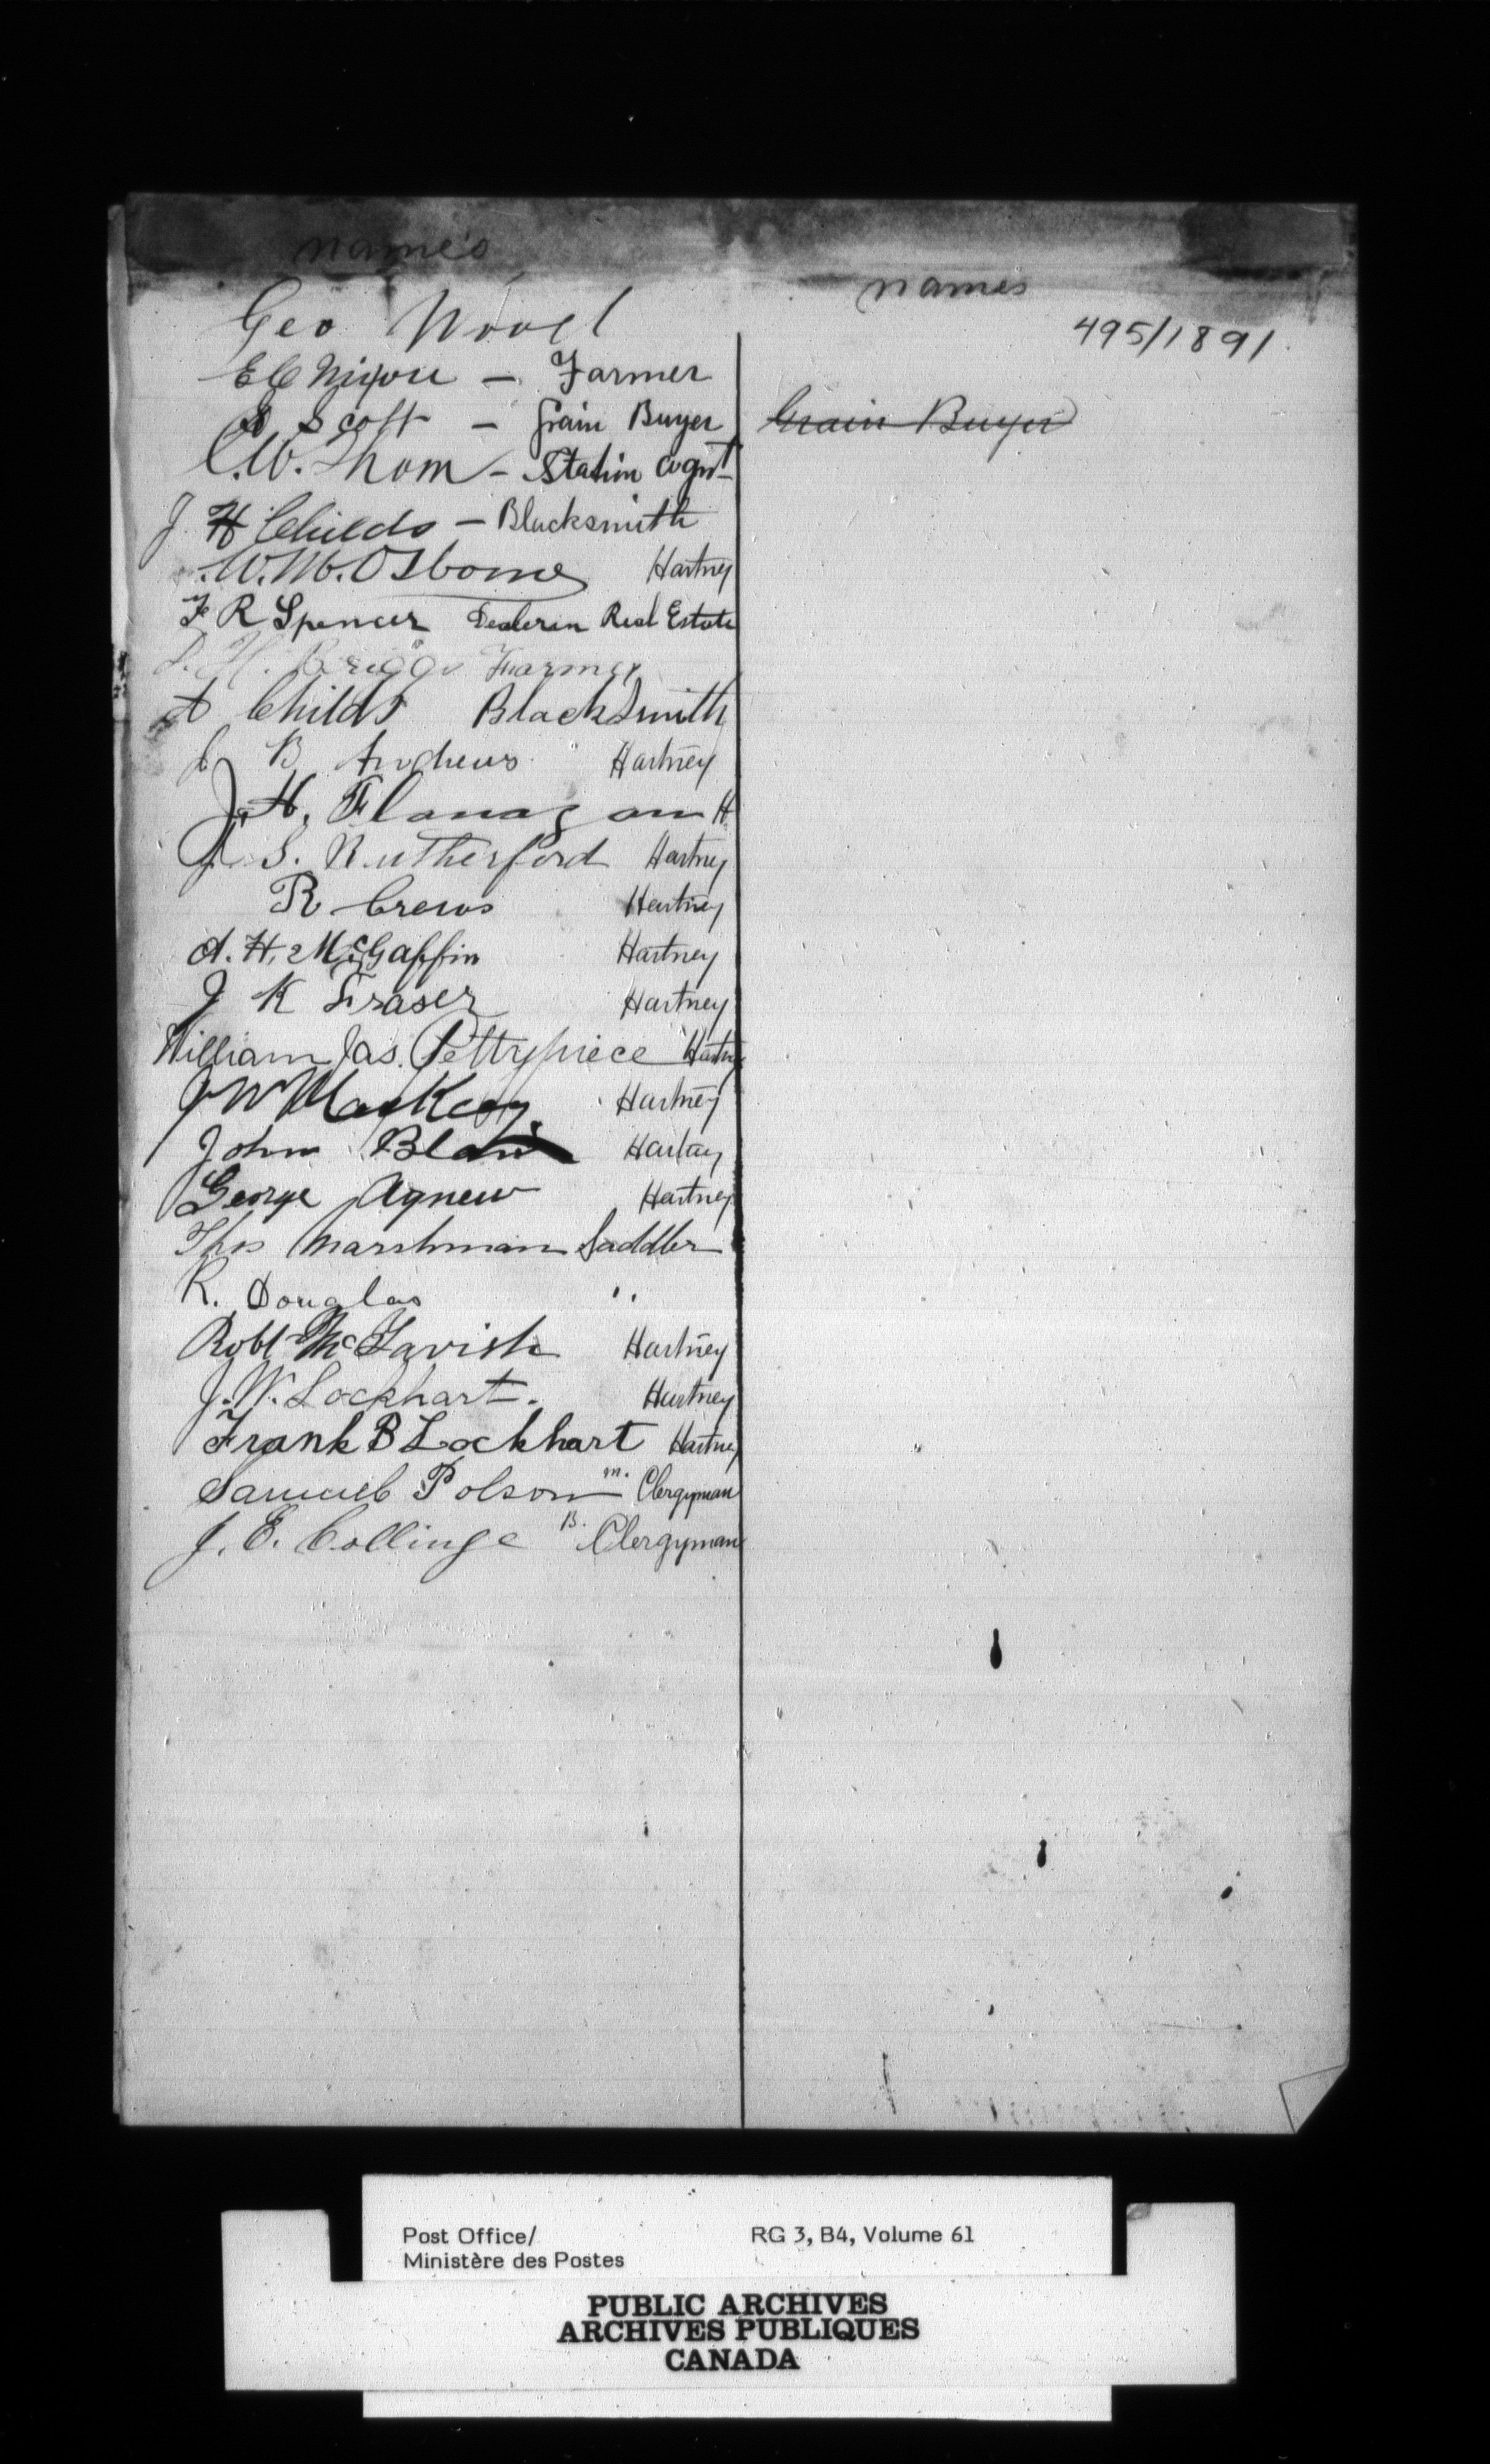 names
names
495/1891
Geo Wood
E C Nixon - Farmer
S Scott - Grain Buyer
Grain Buyer
C. W. Thom - Station Agnt
J H Childs - Blacksmith
W. M. Osborne Hartney
F R Spencer Dealer in Real Estate
D. H. Briggs Farmer
A Childs BlackSmith
J B Andrews Hartney
J. H. Flanagan H.
J. S. Rutherford Hartney
R Crews Hartney
A. H. McGaffin Hartney
J K Fraser Hartney
William Jas. Pettypiece Hartney
J W MacKay Hartney
John Blair Hartney
George Agnew Hartney
Thos Marshman Saddler
R. Douglas "
Robt McTavish Hartney
J. W. Lockhart. Hartney
Frank B Lockhart Hartney
Samuel Polson m. Clergyman
J. E. Collinge B. Clergyman
Post Office/ RG 3, B4, Volume 61
Ministère des Postes
PUBLIC ARCHIVES
ARCHIVES PUBLIQUES
CANADA